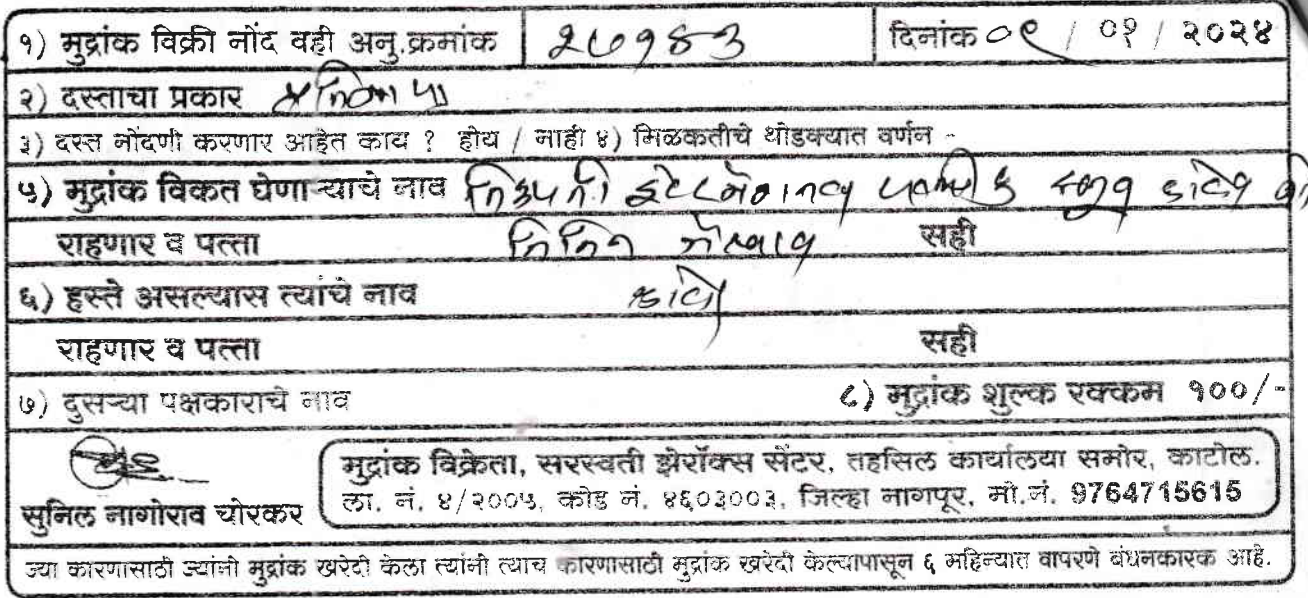 १) मुद्रांक विक्री नोंद वही अनु.क्रमांक २७१४३ दिनांक ०९ / ०१ / २०२४
२) दस्ताचा प्रकार
३) दस्त नोंदणी करणार आहेत काय ? होय / नाही ४) मिळकतीचे थोडक्यात वर्णन -
५) मुद्रांक विकत घेणाऱ्याचे नाव इंटरनॅशनल पब्लीक स्कूल
राहणार व पत्ता सही
६) हस्ते असल्यास त्यांचे नाव
राहणार व पत्ता सही
७) दुसऱ्या पक्षकाराचे नाव ८) मुद्रांक शुल्क रक्कम १००/-
मुद्रांक विक्रेता, सरस्वती झेरॉक्स सेंटर, तहसिल कार्यालया समोर, काटोल.
ला. नं. ४/२००५, कोड नं. ४६०३००३, जिल्हा नागपूर, मो.नं. 9764715615
सुनिल नागोराव चोरकर
ज्या कारणासाठी ज्यांनी मुद्रांक खरेदी केला त्यांनी त्याच कारणासाठी मुद्रांक खरेदी केल्यापासून ६ महिन्यात वापरणे बंधनकारक आहे.